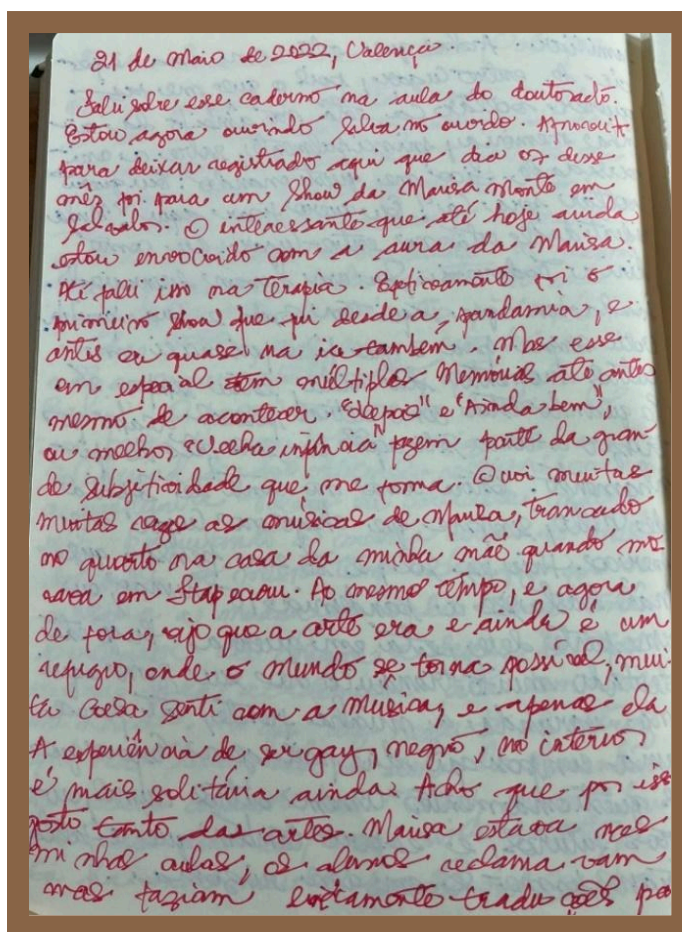 21 de Maio de 2022, Valença.
Falei sobre esse caderno na aula do doutorado.
Estou agora ouvindo Silva no ouvido. Aproveito
para deixar registrado aqui que dia 07 desse
mês foi para um Show da Marisa Monte em
Salvador. O interessante que até hoje ainda
estou envolvido com a aura da Marisa.
Até falei isso na Terapia. Especificamente foi o
primeiro show que fui desde a pandamia, e
antes eu quase na ia também. Mas esse
em especial tem múltiplas memórias até antes
mesmo de acontecer. "depois" e "Ainda bem",
ou melhor "Velha infância" fazem parte da gran
de subjetividade que me forma. Ouvi muitas
muitas vezes as músicas de Marisa, trancado
no quarto na casa da minha mãe quando mo
rava em Itapicuru. Ao mesmo tempo, e agora
de fora, vejo que a arte era e ainda é um
refúgio, onde o mundo se torna possível, mui
ta coisa senti com a música, e apenas ela
A experiência de ser gay, negro, no interior
é mais solitária ainda. Acho que por isso
gosto tanto das artes. Marisa estava nas
minhas aulas, os alunos reclama vam
mas faziam traduções pa